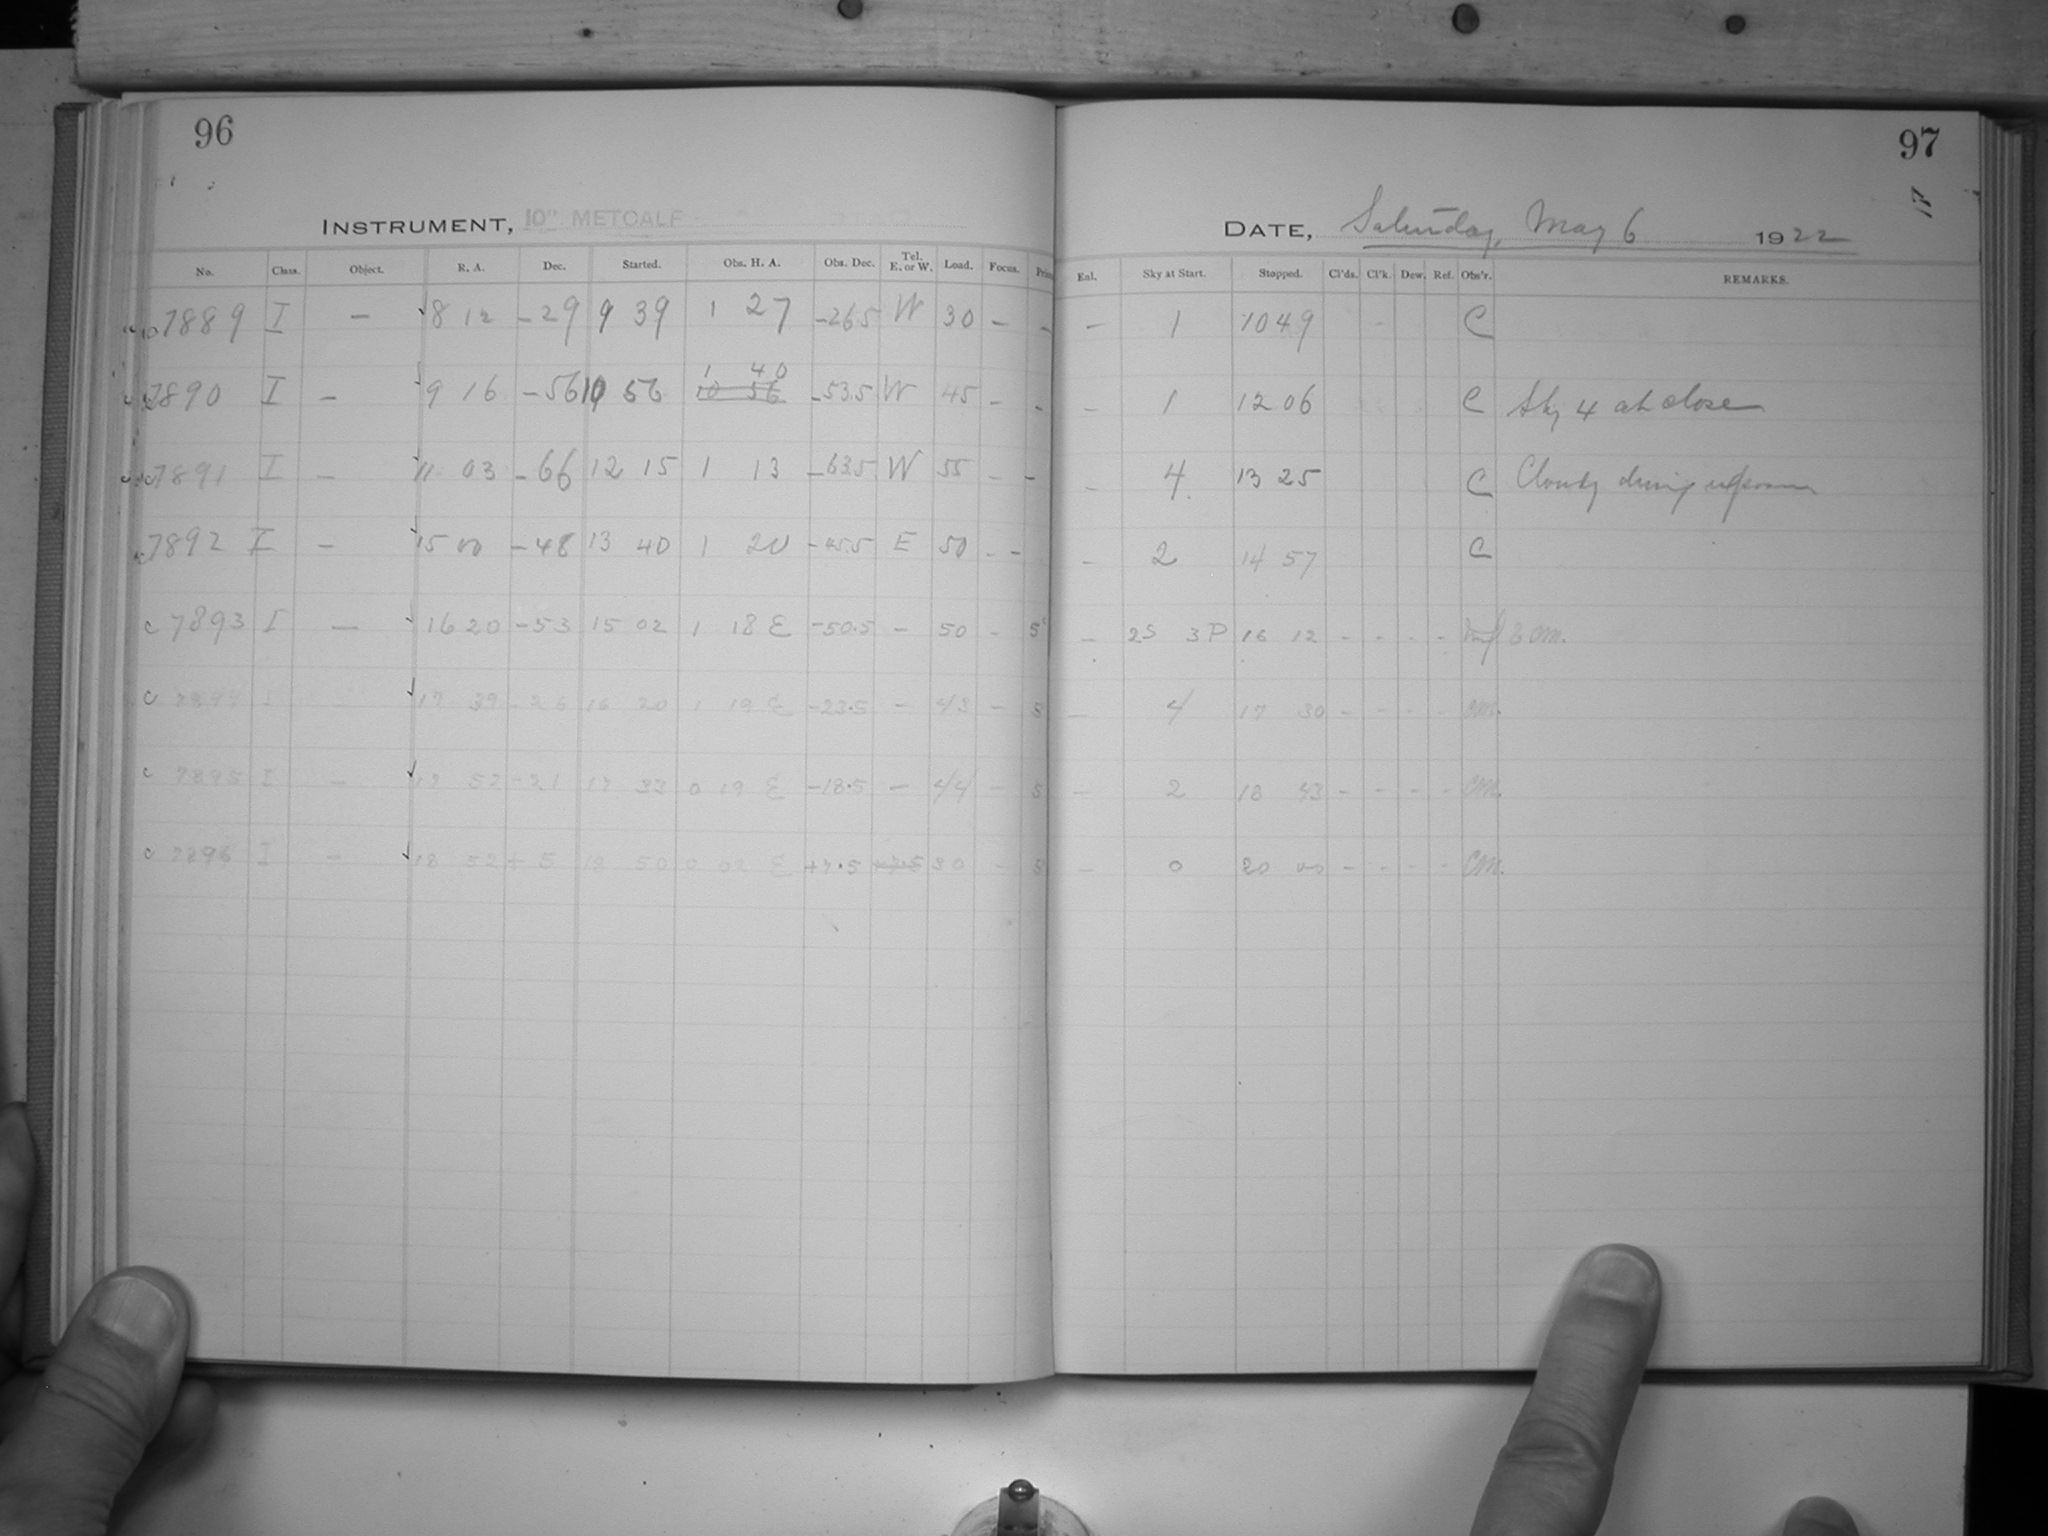 96
INSTRUMENT, 10" METCALF
No. Class. Object. R. A. Dec. Started. Obs. H. A. Obs. Dec. Tel. E. or W. Load. Focus.
7889 I — 8 12 -29 9 39 1 27 -26.5 W 30 - -
7890 I — 9 16 -56 10 56 1 40 -53.5 W 45 - -
7891 I — 11 03 -66 12 15 1 13 -63.5 W 55 - -
7892 I — 15 00 -48 13 40 1 20 -45.5 E 50 - -
c 7893 I — 16 20 -53 15 02 1 18 E -50.5 - 50 - 5
c 7894 I — 17 39 -26 16 20 1 19 E -23.5 - 43 - 5
c 7895 I — 17 52 -21 17 33 0 19 E -18.5 - 44 - 5
c 7896 I — 18 52 +5 18 50 0 02 E +7.5 +7.5 30 - 5
97
DATE, Saturday, May 6 1922
Enl. Sky at Start. Stopped. Cl'ds. Cl'k. Dew. Ref. Obs'r. REMARKS.
— 1 10 49 - C
— 1 12 06 C Sky 4 at close
— 4 13 25 C Cloudy during
— 2 14 57 C
— 2S 3P 16 12 - - - - CM.
— 4 17 30 - - - - CM.
— 2 18 43 - - - - CM.
— 0 20 00 - - - - CM.